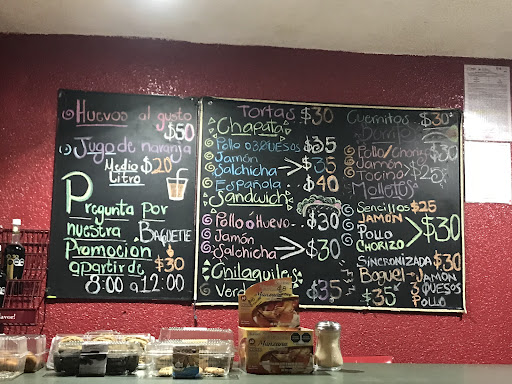 Huevos al gusto
$50
Jugo de naranja
Medio $20
Litro
Pregunta Por
nuestra BAGUETTE
Promoción
apartir de $30
8:00 a 12:00
Tortas $30
Chapata
Pollo o 3 QUESOS $35
Jamón
Salchicha > $35
Española $40
Sandwich
Pollo o Huevo $30
Jamón
Salchicha > $30
Chilaquiles
Verd $35
Cuernitos $30
Burritos
Pollo/Chorizo $30
Jamón
Tocino $28
Molletes
Sencillos $25
JAMÓN
POLLO
CHORIZO > $30
SINCRONIZADA $30
Baguet JAMÓN
$35 3 QUESOS
POLLO
Manzana